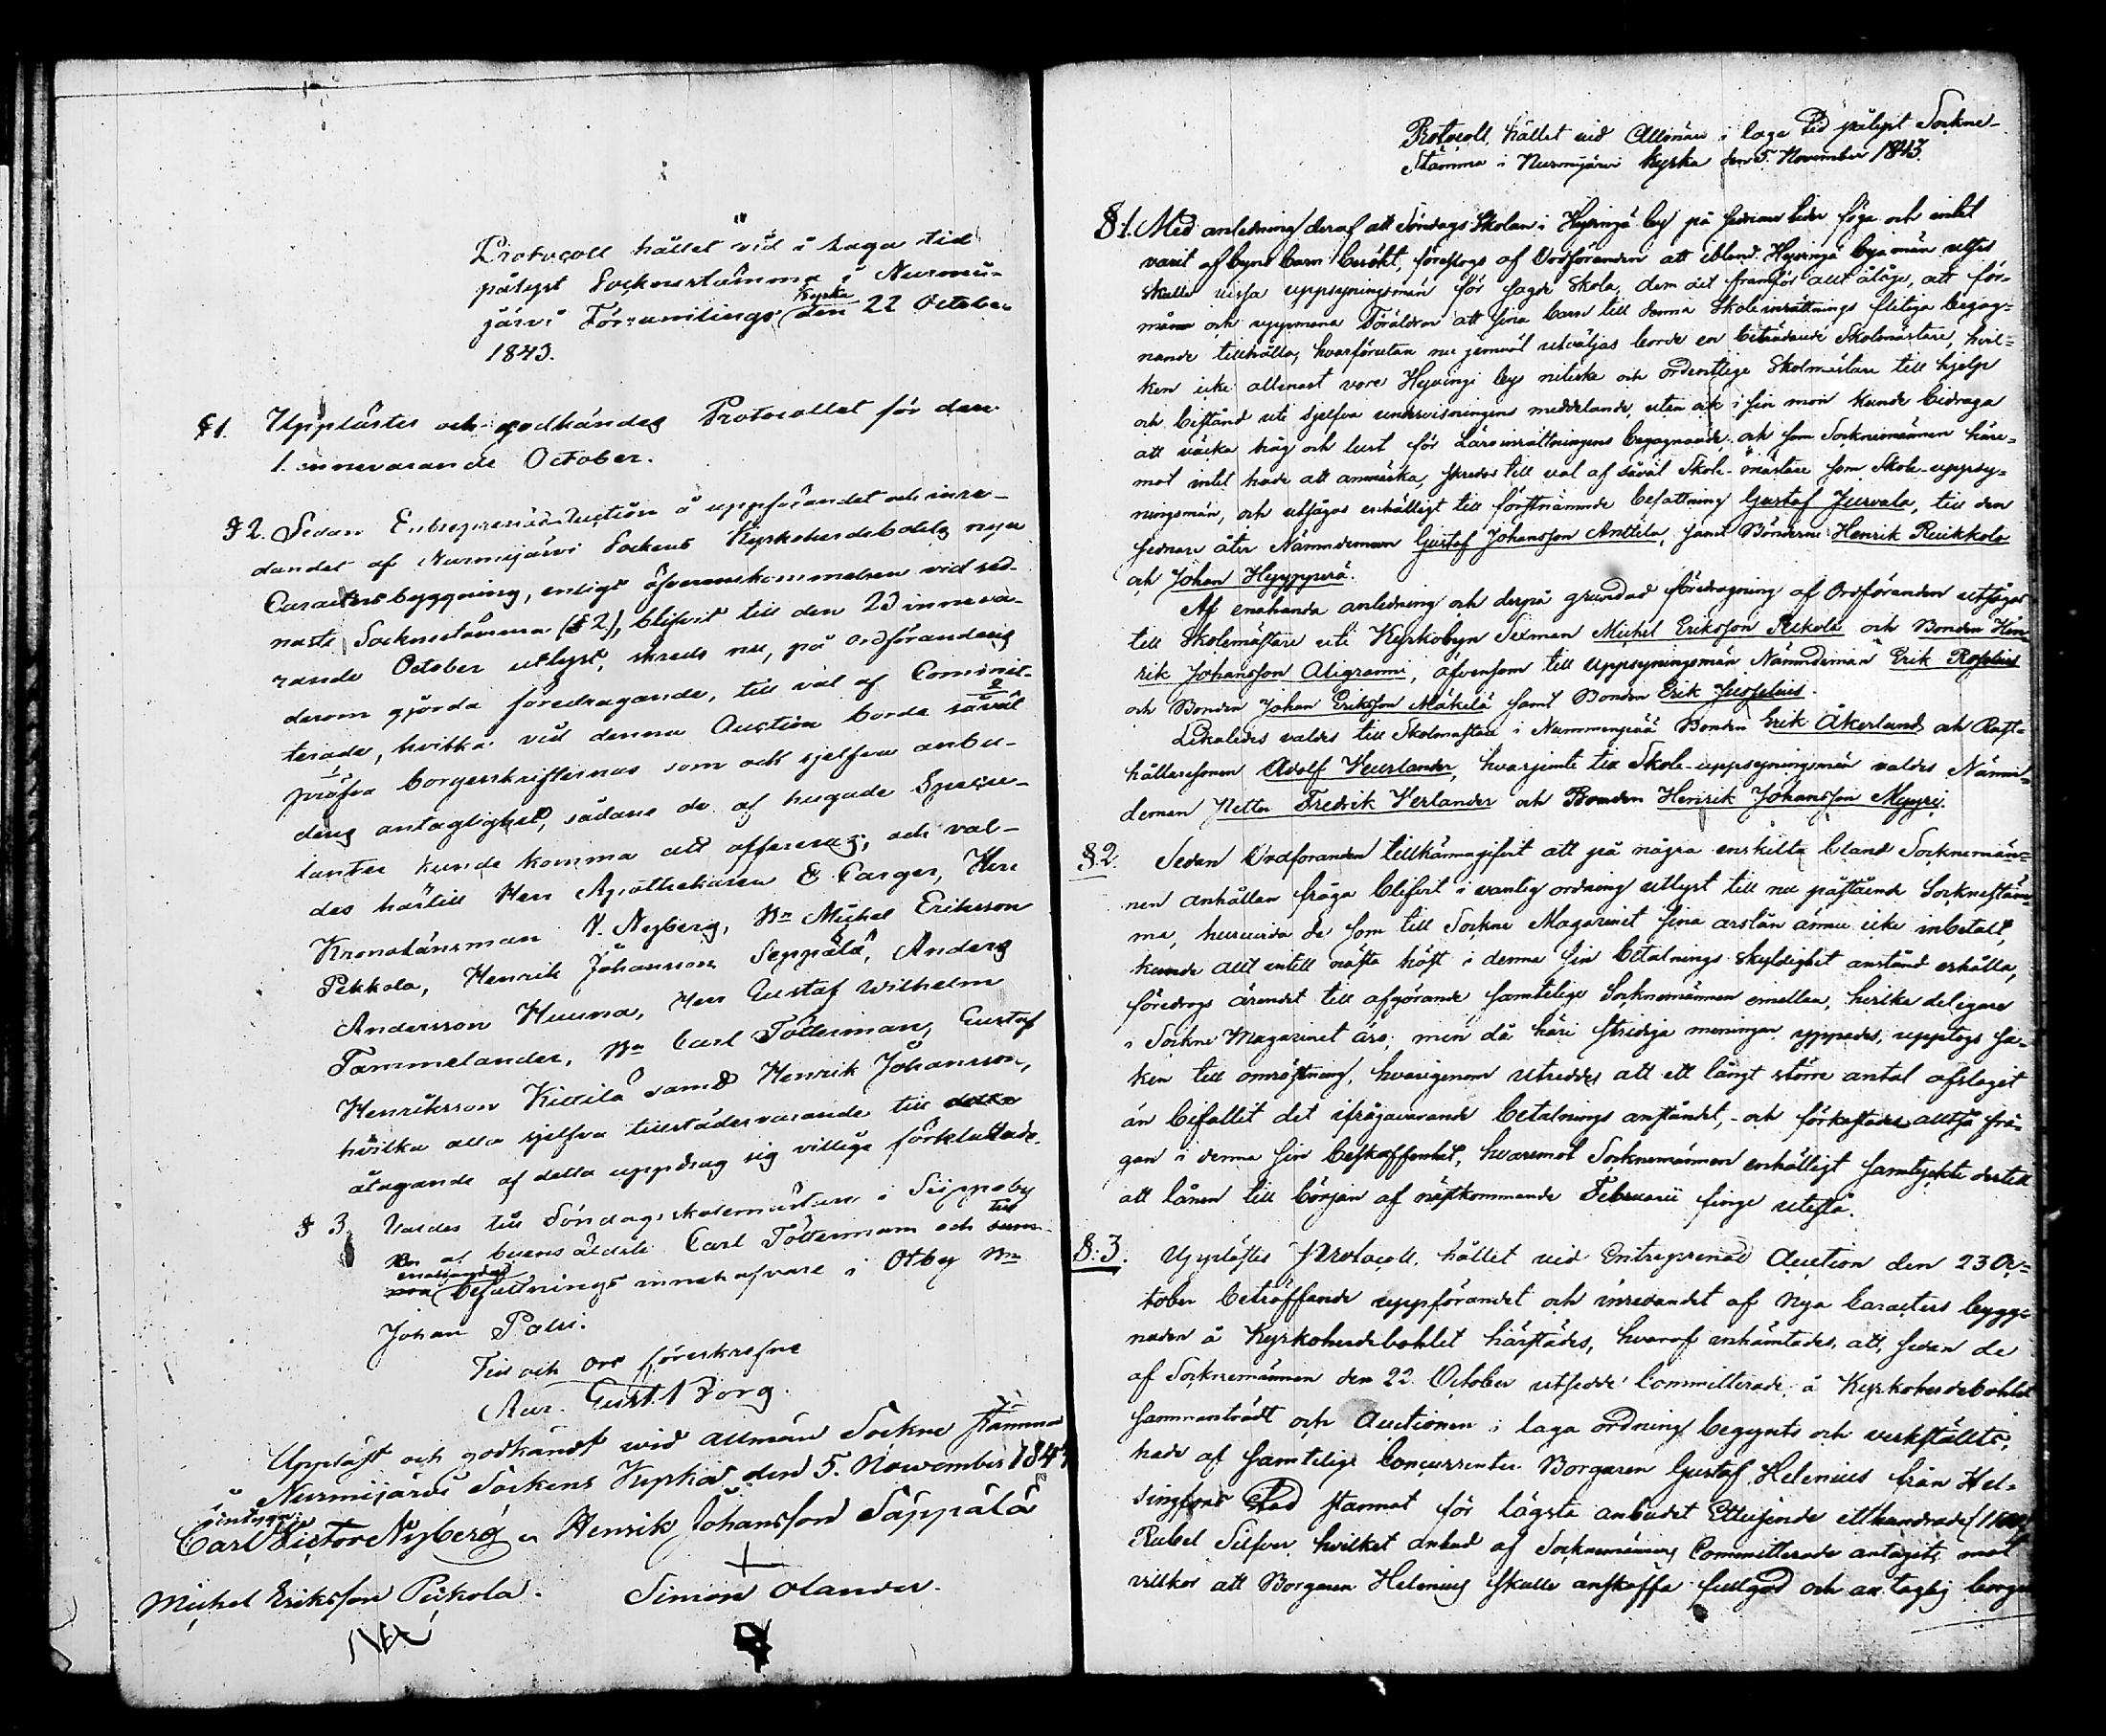 Protocoll hållet vid i Laga tid
pålyst Sockenstämma i Nurmi-
järvi Församlings Kyrka den 22 October
1843.
§ 1. Upplästes och godkändes Protocollet för den
1. innevarande October.
§ 2. Sedan Entreprenadsauction å uppförandet och inre-
dandet af Nurmijärvi Sockens Kyrkoherdebohls nya
Caractersbyggning, enligt öfverenskommelsen vid sed-
nasta Socknestämma (§ 2), blifvit till den 23 inneva-
rande October utlyst, skreds nu, på Ordförandens
derom gjorda föredragande, till val af Committ-
terade, hvilka vid denna Auction borde såväl
pröfva borgesskrifternas som ock sjelfva anbu-
dens antaglighet, sådane de af hugade Specu-
lanter kunde komma att offereras; och val-
des härtill Herr Apothekaren E. Farger, Herr
Kronolänsman V. Nyberg, Bn Michel Eriksson
Pekkola, Henrik Johansson Seppälä, Anders
Andersson Huuna, Herr Gustaf Wilhelm
Tammelander, Bn Carl Fötterman, Gustaf
Henriksson Kittilä samt Henrik Johansson,
hvilka alla sjelfva tillstädesvarande till
åtagande af detta uppdrag sig villige förklarade.
§ 3. Valdes till Söndagsskolemästare i Siippoby
Bn ac byens äldste Carl Fötterman och till
enahanda befattnings innehafvare i Otby Bn
Johan Palsi.
Tid och Ort föreskrefne
Aur. Gust. Borg.
Uppläst och godkändt wid allmän Sockne stämma
i Nurmijärvi Sockens Kyrka den 5. November 1843
intyga:
Carl Victor Nyberg Henrik Johansson Säppälä
Michel Eriksson Pekola. Simon Olander.
Protocoll, hållet vid Allmän i laga tid pålyst Sockne-
Stämma i Nurmijärvi Kyrka den 5. November 1843.
§ 1. Med anledning deraf att Söndags Skolan i Hyvinge by på sednare tider föga och intet
varit af byns barn besökt, föreslogs af Ordföranden att ibland Hyvinge byamän utses
skulle vissa uppsyningsmän för sagde Skola, dem det framför allt ålåge, att för-
måna och uppmana Föräldrar att sina barn till denna Skoleinrättnings flitiga begag-
nande tillhålla, hvarförutan nu jemväl utväljas borde en biträdande Skolmästare, hvil-
ken icke allenast vore Hyvinge bys nitiske och ordentlige Skolmästare till hjelp
och bistånd uti sjelfva undervisningens meddelande, utan ock i sin mon kunde bidraga
att väcka håg och lust för Läroinrättningens begagnande; och som Socknemännen häre-
mot intet hade att anmärka, skreds till val af såväl Skole-mästare som Skole-uppsy-
ningsmän, och utsågos enhälligt till förstnämnde befattning Gustaf Jurvala, till den
sednare åter Nämndeman Gustaf Johansson Anttila, samt Bönderne Henrik Ruikkola
och Johan Hyyppärä.
Af enahanda anledning och derpå grundad föredragning af Ordföranden utsågos
till Skolmästare uti Kyrkobyn Sexman Michel Eriksson Pekola och Bonden Hen-
rik Johansson Aligrammi, äfvensom till uppsyningsmän Nämndeman Erik Roselius
och Bonden Johan Eriksson Mäkilä samt Bonden Erik Juselius.
Likaledes valdes till Skolmästare i Nummenpää Bonden Erik Åkerlund och Rust-
hållaresonen Adolf Heurlander, hvarjemte till Skole-uppsyningsmän valdes Nämn-
deman Petter Fredrik Herlander och Bonden Henrik Johansson Myyri.
§ 2. Sedan Ordföranden tillkännagifvit att på några enskilta bland Socknemän-
nen anhållan fråga blifvit i vanlig ordning utlyst till nu påstående Socknestäm-
ma, huruvida de som till Sockne Magazinet sina årslån ännu icke inbetalt,
kunde allt intill nästa höst i denna sin betalnings skyldighet anstånd erhålla,
föredrogs ärendet till afgörande samtelige Socknemännen emellan, hvilka delegare
i Sockne Magazinet äro; men då häri stridiga meningar yppades, upptogs sa-
ken till omröstning, hvarigenom utreddes att ett långt större antal afslagit
än bifallit det ifrågavarande betalnings anståndet, och förkastades alltså frå-
gan i denna sin beskaffenhet, hvaremot Socknemännen enhälligt samtyckte dertill
att lånen till början af nästkommande Februarii finge utestå.
§: 3. Upplästes Protocoll, hållet vid Entreprenad Auction den 23 Oc-
tober beträffande uppförandet och inredandet af nya Caracters bygg-
naden å Kyrkoherdebohlet härstädes, hvaraf inhämtades, att, sedan de
af Socknemännen den 22 October utsedde Committerade å Kyrkoherdebohlet
sammanträdt och Auctionen i laga ordning begynts och verkställts,
hade af samtelige Concurrenter Borgaren Gustaf Helenius från Hel-
singfors Stad stannat för lägsta anbudet Ettusende etthundrade (1100)
Rubel Silfver, hvilket anbud af Socknemännens Committerade antagits mot
villkor att Borgaren Helenius skulle anskaffa fullgod och antaglig borgen